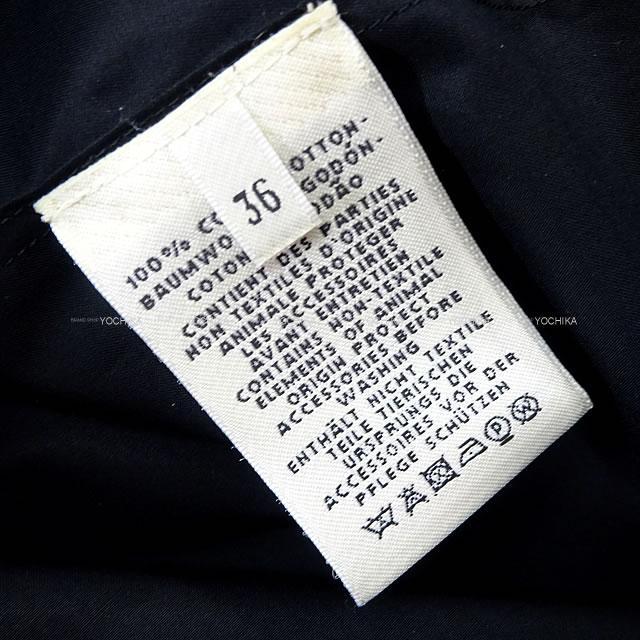 36
100% CO OTTON-
BAUMWO GODÓN-
COTON DÃO
CONTIENT DES PARTIES
NON TEXTILES D'ORIGINE
ANIMALE PROTEGER
LES ACCESSOIRES
AVANT ENTRETIEN
CONTAINS NON TEXTILE
ELEMENTS OF ANIMAL
ORIGIN PROTECT
ACCESSORIES BEFORE
WASHING
ENTHÄLT NICHT TEXTILE
TEILE TIERISCHEN
URSPRUNGS DIE
ACCESSOIRES VOR DER
PFLEGE SCHÜTZEN
P W
BRAND SHOP YOCHIKA
YOCHIKA